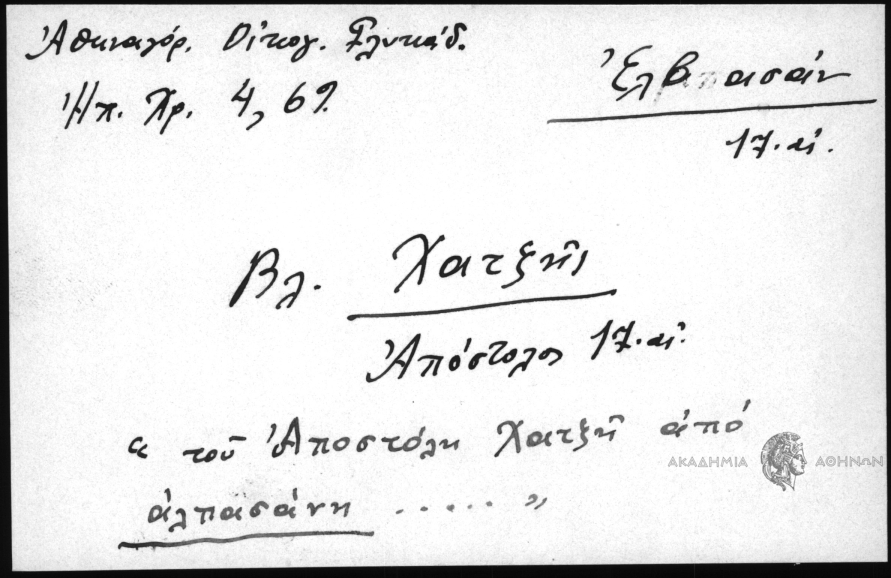 Ἀθηναγόρ. Οἰκογ. Γλυκάδ.
Ἠπ. Χρ. 4, 69.
Ἐλβασάν
17. αἰ.
Βλ. Χατζῆς
Ἀπόστολος 17. αἰ.
« τοῦ Ἀποστόλη Χατζῆ ἀπό
ἀλπασάνη ...... »
ΑΚΑΔΗΜΙΑ ΑΘΗΝΩΝ